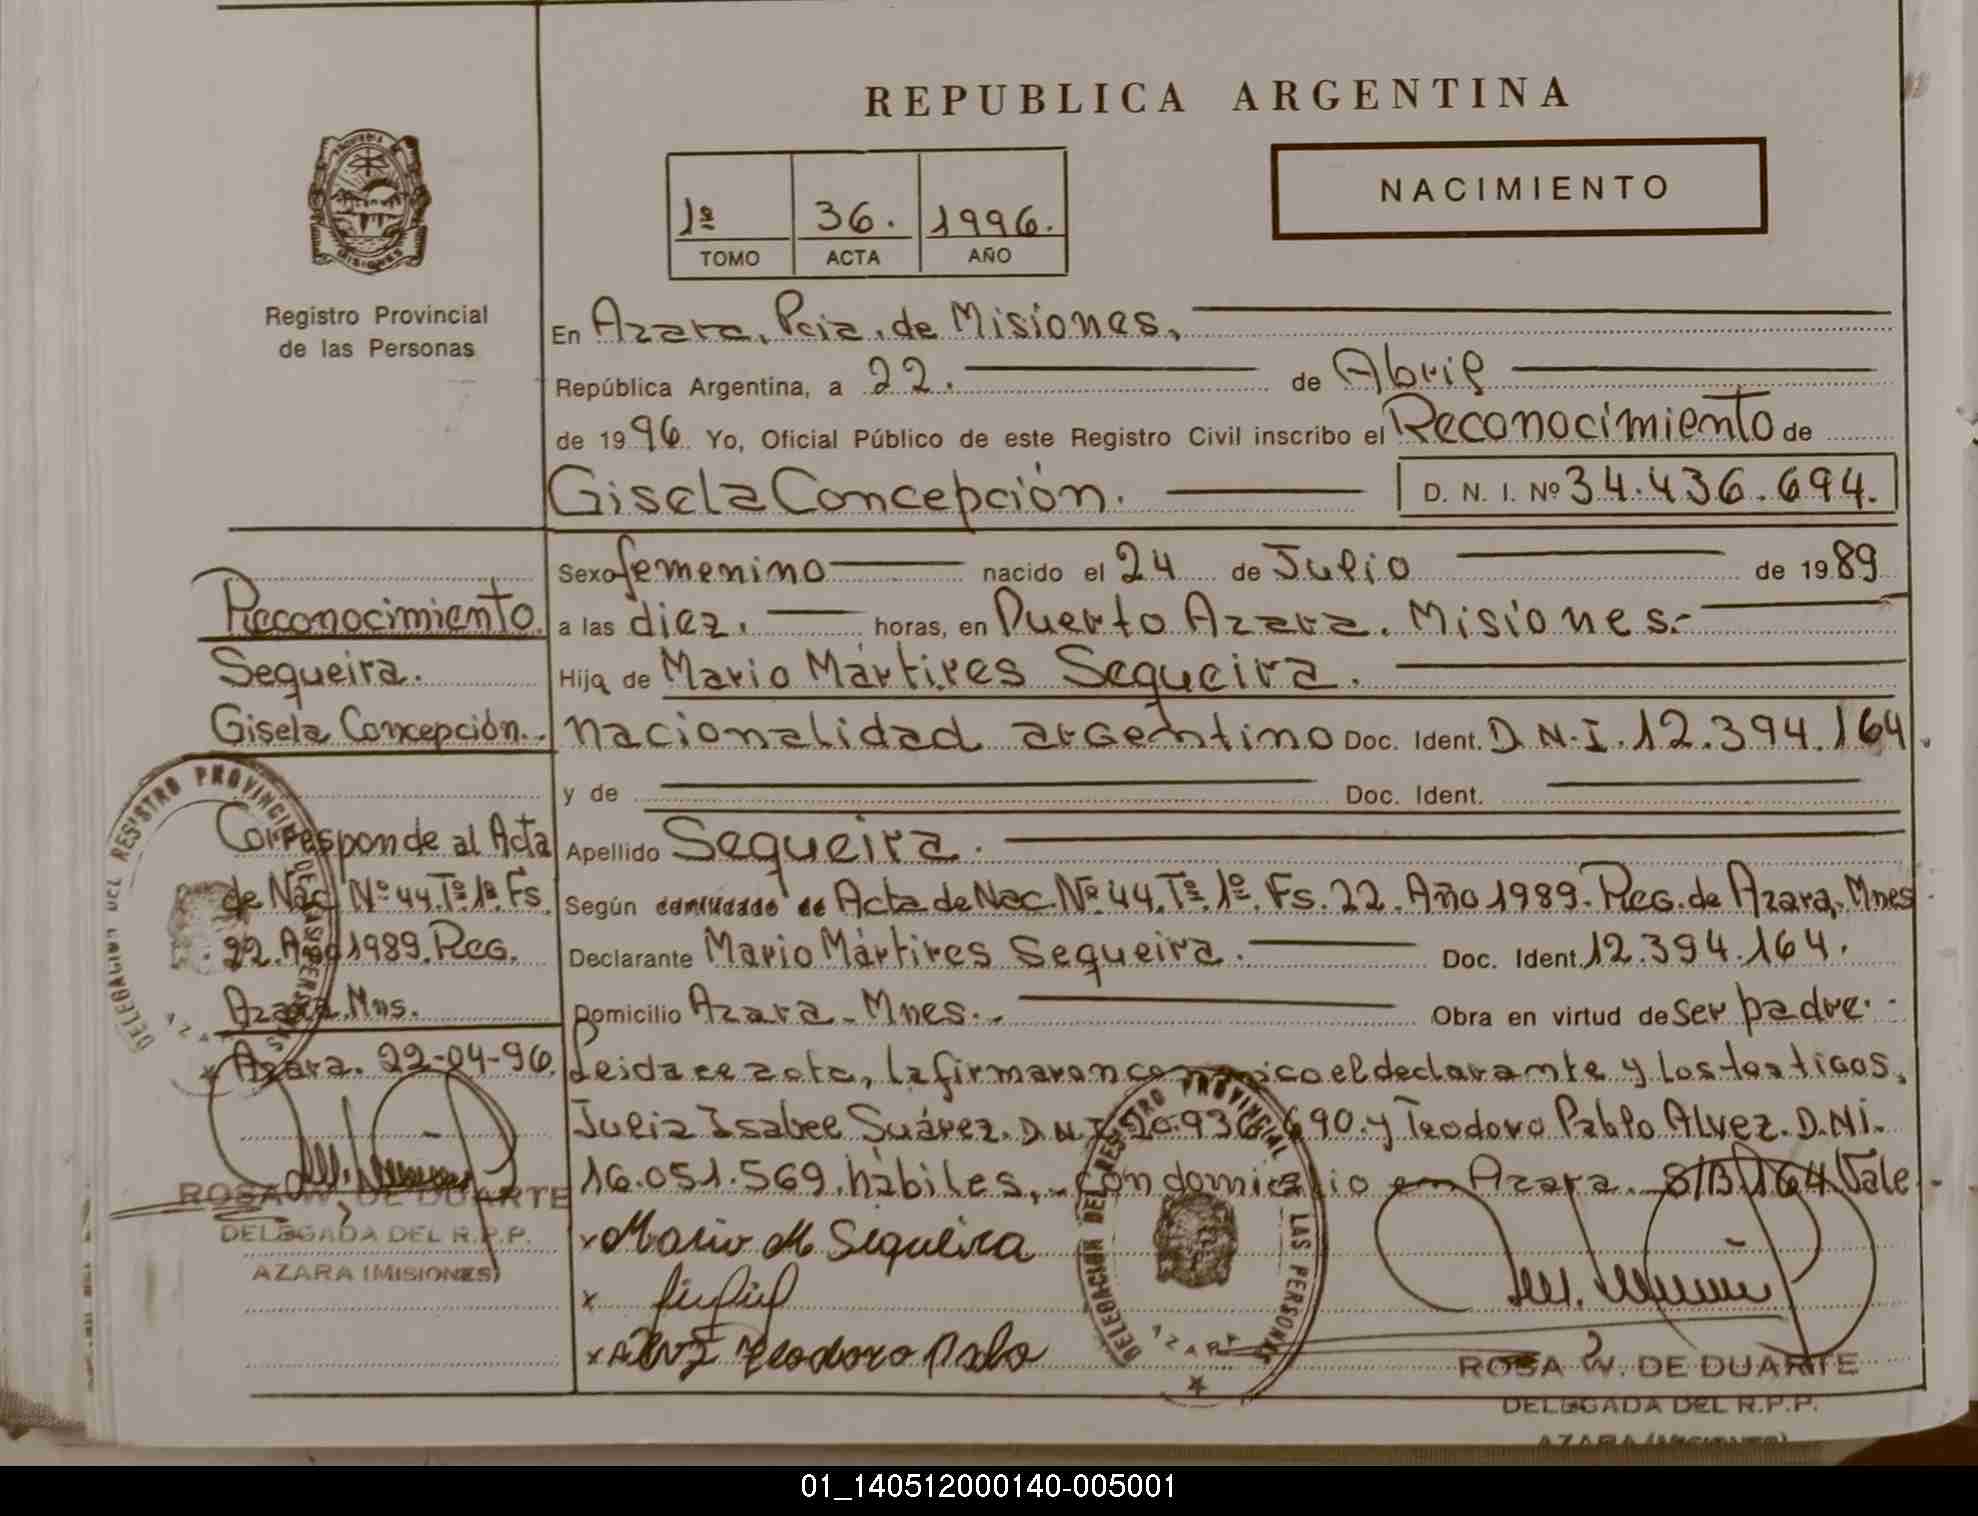 REPUBLICA ARGENTINA
NACIMIENTO
1º 36. 1996.
TOMO ACTA AÑO
MISIONES
Registro Provincial
de las Personas
En Azara, Pcia. de Misiones,
República Argentina, a 22. de Abril
de 1996 Yo, Oficial Público de este Registro Civil inscribo el Reconocimiento de
Gisela Concepción. D. N. I. Nº 34.436.694.
Sexo femenino nacido el 24 de Julio de 1989
a las diez. horas, en Puerto Azara. Misiones.-
Hija de Mario Mártires Sequeira.
nacionalidad argentino Doc. Ident. D.N.I. 12.394.164.
y de Doc. Ident.
Apellido Sequeira.
Según Acta de Nac. Nº 44. Tº. 1º. Fs. 22. Año 1989. Reg. de Azara, Mnes
Declarante Mario Mártires Sequeira. Doc. Ident. 12.394.164.
Domicilio Azara - Mnes.- Obra en virtud de ser padre.-
Leida el acta, la firmaron conmico el declarante y los testigos,
Julia Isabel Suárez. D.N.I. 20.936.690. y Teodoro Pablo Alvez. D.N.I.
16.051.569. hábiles, con domicilio en Azara. S/B. 164. Vale.-
x Mario M Sequeira
x
x Teodoro Pablo
Reconocimiento.
Sequeira.
Gisela Concepción.-
Corresponde al Acta
de Nac. Nº 44. Tº. 1º. Fs.
22. Año 1989. Reg.
Azara. Mns.
Azara. 22-04-96.
ROSA W. DE DUARTE
DELEGADA DEL R.P.P.
AZARA (MISIONES)
DELEGACION DEL REGISTRO PROVINCIAL DE LAS PERSONAS
AZARA
DELEGACION DEL REGISTRO PROVINCIAL DE LAS PERSONAS
AZARA
ROSA W. DE DUARTE
DELEGADA DEL R.P.P.
AZARA (MISIONES)
01_140512000140-005001